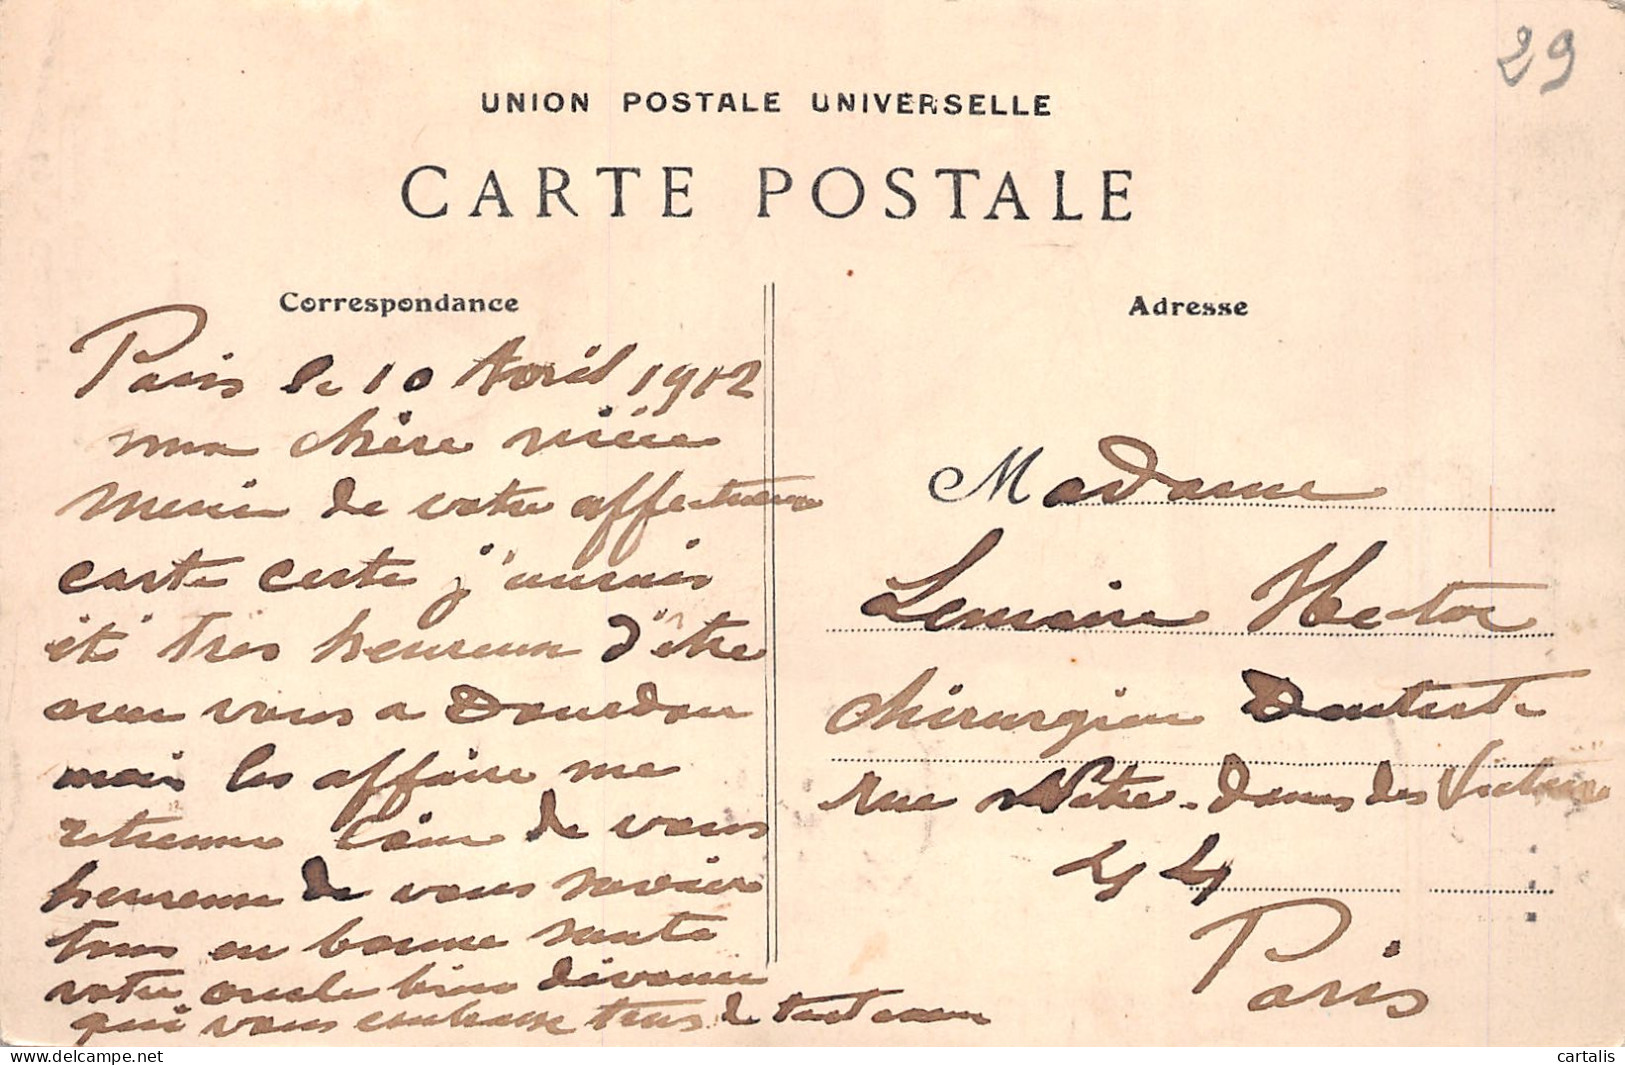 29
UNION POSTALE UNIVERSELLE
CARTE POSTALE
Correspondance
Adresse
Paris le 10 Avril 1912
ma chère nièce
Merci de votre affectueuse
carte certe j'aurais
été très heureux d'être
avec vous a Dourdan
mais les affaire me
retienne loin de vous
heureux de vous savoir
tous en bonne santé
votre oncle bien
qui vous embrasse tous de tout cœur
Madame
Lemaire Hector
chirurgien Dentiste
rue Notre-Dames des Victoire
44
Paris
cartalis